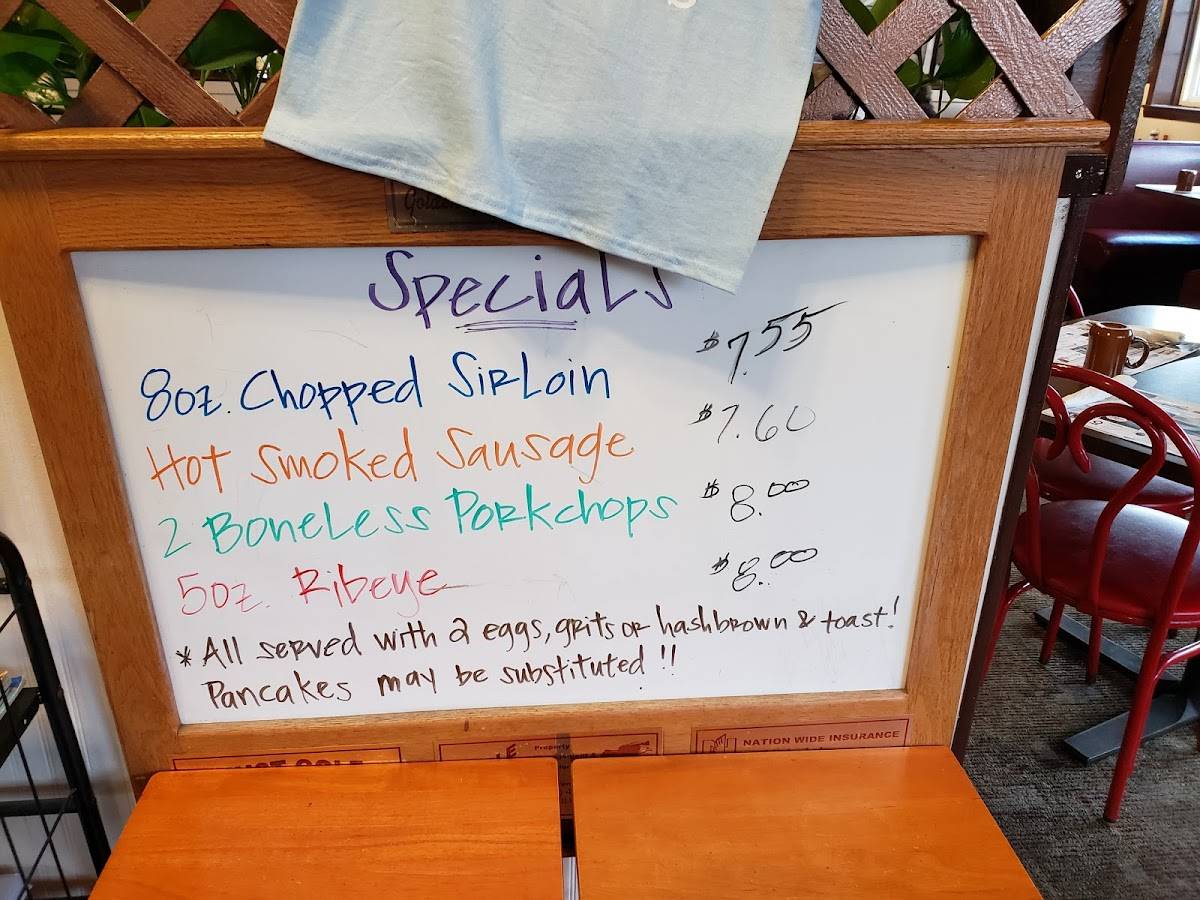 Specials
8oz. Chopped Sirloin $7.55
Hot Smoked Sausage $7.60
2 Boneless Porkchops $8.00
5oz. Ribeye $8.00
* All served with 2 eggs, grits or hashbrown & toast!
Pancakes may be substituted!!
NATION WIDE INSURANCE